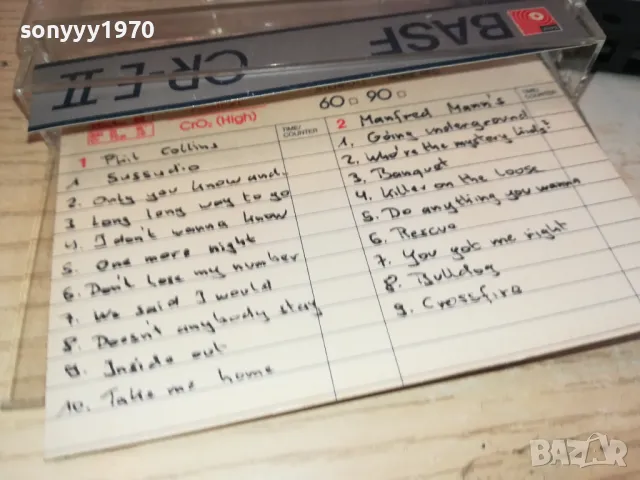 sonyyy1970
BASF
CR-E II
60 90
CrO₂ (High)
TIME/
COUNTER
TIME/
COUNTER
1 Phil Collins
1 Sussudio
2. Only you know and.
3 Long long way to go
4. I don't wanna know
5. One more night
6. Don't lose my number
7. We said I would
8. Doesn't anybody stay
9. Inside out
10. Take me home
2 Manfred Mann's
1. Going underground
2. Who're the mystery kids?
3. Banquet
4. Killer on the loose
5. Do anything you wanna
6. Rescue
7. You got me right
8. Bulldog
9. Crossfire
BAZAR